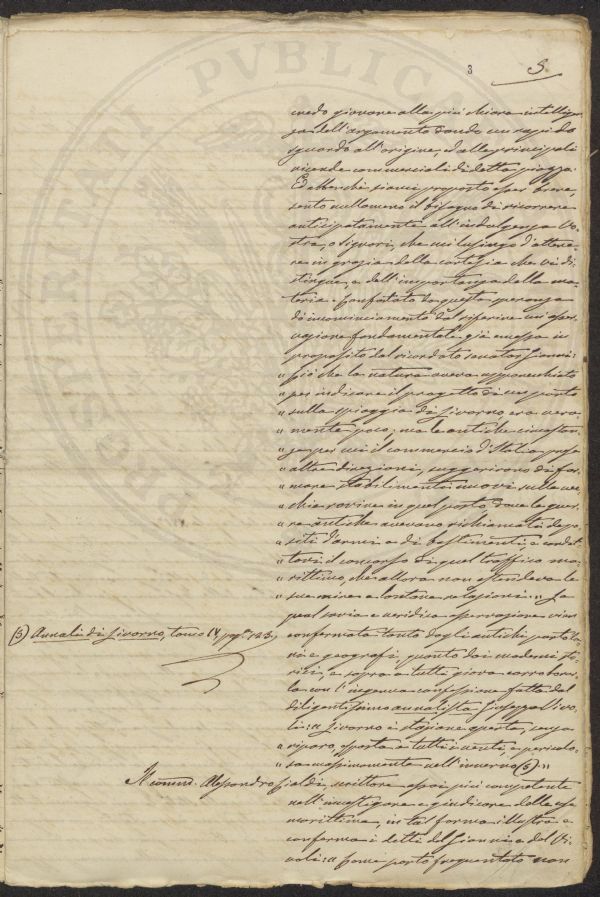 3 5.
credo giovare alla più chiara intelligen-
za dell'argomento dando un rapido
sguardo all'origine, ed alle principali
vicende commerciali di detta piazza.
Ed abbenchè siami proposto esser breve
sento nullameno il bisogno di ricorrere
anticipatamente all'indulgenza Vo-
stra, o Signori, che mi lusingo d'ottene-
re in grazia della cortesia che Vi di-
stingue, e dell'importanza della ma-
teria. Confortato da questa speranza
do incominciamento dal riferire un'osser-
vazione fondamentale già emessa in
proposito dal ricordato senator Gianni:
" Ciò che la natura aveva apparecchiato
" per indicare il progetto di un porto
" sulla spiaggia di Livorno, era vera-
" mente poco, ma le antiche circostan-
" ze per cui il commercio d'Italia prese
" altre direzioni, suggerirono di for-
" mare stabilimenti nuovi sulle vec-
" chie rovine in quel posto dove le guer-
" re antiche avevano richiamati depo-
" siti d'armi, e di bastimenti, e condot-
" tovi il concorso di quel traffico ma-
" rittimo, che allora non estendeva le
" sue mire a lontane relazioni." La
qual savia e veridica osservazione vien
confermata tanto dagli antichi portola-
ni e geografi, quanto dai moderni sto-
rici, e sopra a tutti giova corrobora-
la con l'ingenua confessione fatta dal
diligentissimo annalista Giuseppe Vivo-
li: " Livorno è stazione aperta, senza
" riparo, esposta a tutti i venti, e pericolo-
" sa massimamente nell'inverno (3)."
(3) Annali di Livorno, tomo IV, pag. 123.
Il comm. Alessandro Cialdi, scrittore assai più competente
nell'investigare e giudicare delle cose
marittime, in tal forma illustra e
conferma i detti del Gianni e del Vi-
voli: " Come porto frequentato non
PROSPERITATI PUBLICAE